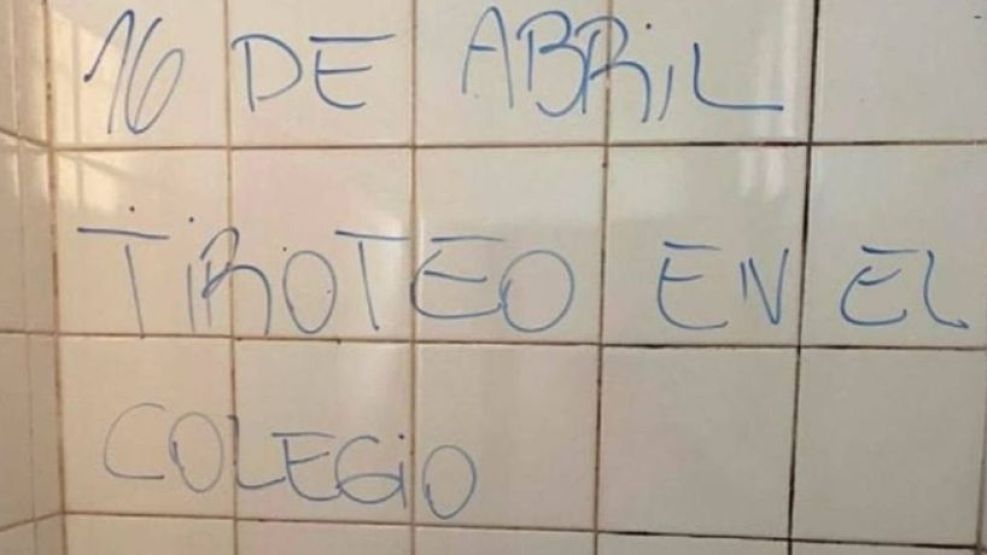 16 DE ABRiL
TiROTEO EN EL
COLEGiO